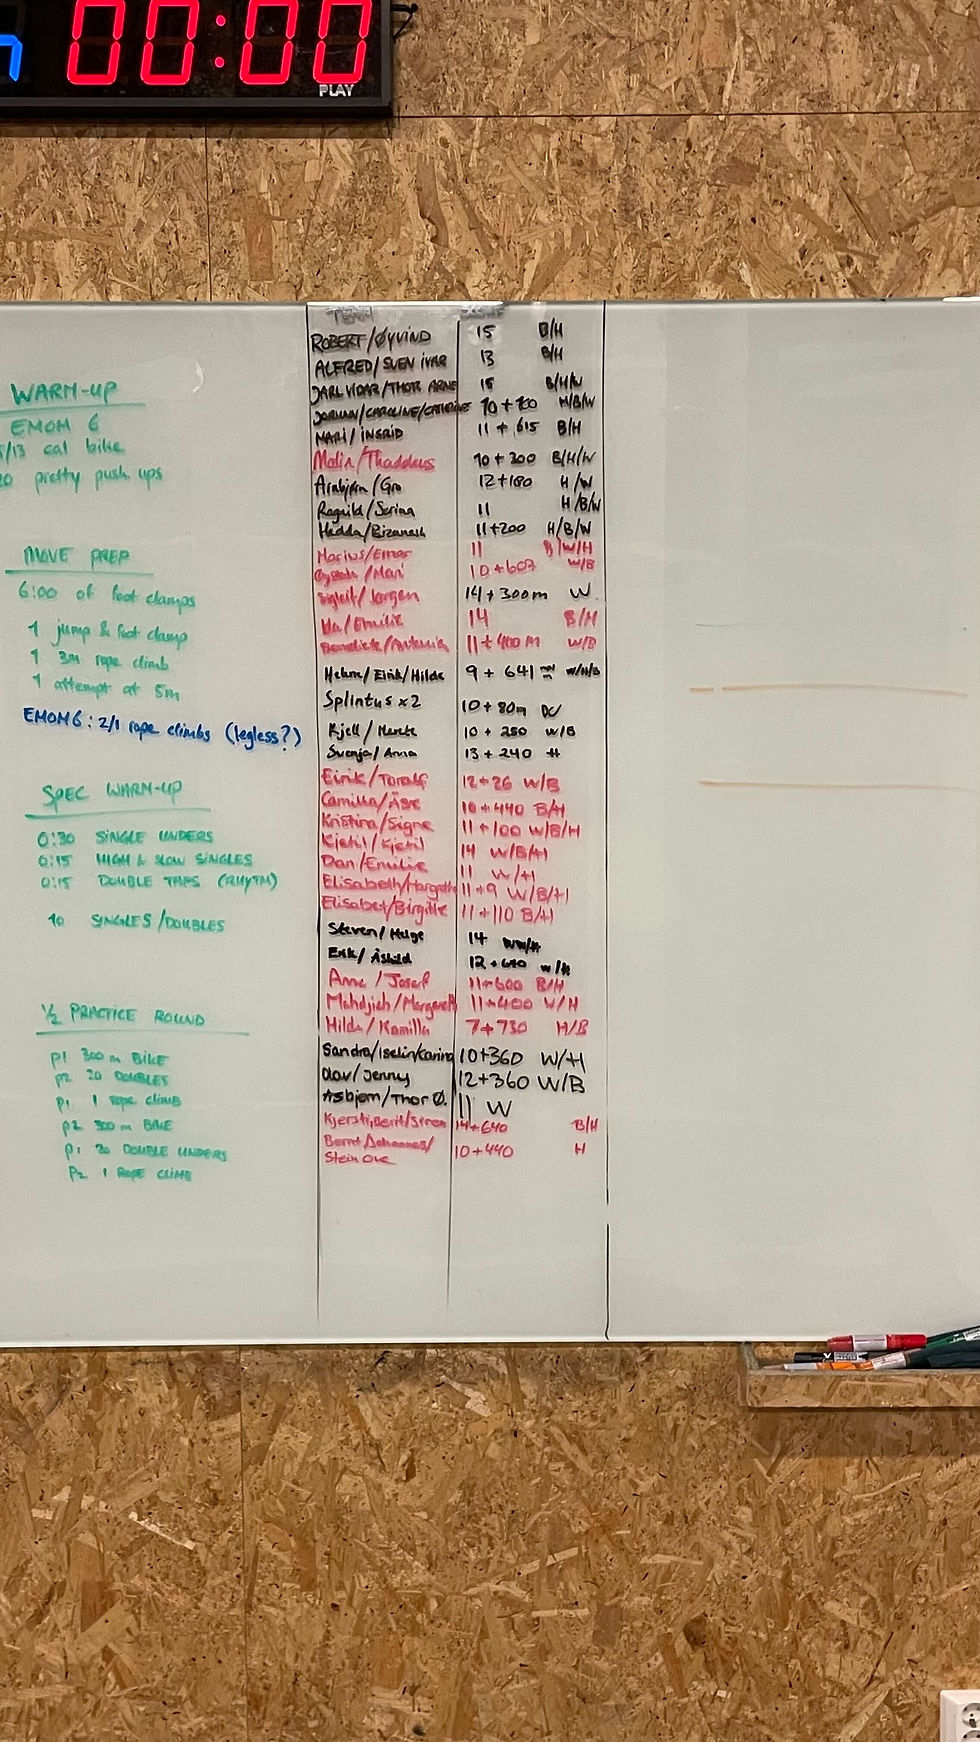 00:00
PLAY
WARM-UP
EMOM 6
/13 cal bike
20 pretty push ups
MOVE PREP
6:00 of foot clamps
1 jump & foot clamp
1 3m rope climb
1 attempt at 5m
EMOM 6: 2/1 rope climbs (legless?)
SPEC WARM-UP
0:30 SINGLE UNDERS
0:15 HIGH & SLOW SINGLES
0:15 DOUBLE TAPS (RHYTM)
10 SINGLES/DOUBLES
1/2 PRACTICE ROUND
P1 300 m BIKE
P2 20 DOUBLES
P1 1 rope climb
P2 300 m BIKE
P1 20 DOUBLE UNDERS
P2 1 ROPE CLIMB
TEAM SCORE
ROBERT/ØYVIND 15 B/H
ALFRED/SVEN IVAR 13 B/H
JARL VIDAR/THOR ARNE 15 B/H/W
JORUNN/CAROLINE/CATHRINE 10+100 H/B/W
MARI/INGRID 11+615 B/H
Malin/Thaddeus 10+300 B/H/W
Arnbjørn/Gro 12+180 H/W
Ragnild/Serina 11 H/B/W
Hedda/Bizanesh 11+200 H/B/W
Marius/Einar 11 B/W/H
Øystein/Mari 10+607 W/B
Sigleif/Jørgen 14+300m W
Ida/Emilie 14 B/H
Benedicte/Antonia 11+400M W/B
Helene/Eirik/Hilde 9+641 W/H/B
Splintus x2 10+80m
Kjell/Merete 10+250 W/B
Svenja/Anna 13+240 H
Eirik/Toralf 12+26 W/B
Camilla/Åse 10+440 B/H
Kristina/Signe 11+100 W/B/H
Kjetil/Kjetil 14 W/B/H
Dan/Emilie 11 W/H
Elisabeth/Margrethe 11+9 W/B/H
Elisabet/Birgitte 11+110 B/H
Steven/Helge 14
Erik/Åshild 12+640 W/H
Anne/Josef 11+600 B/H
Mahdjieh/Margareth 11+400 W/H
Hilda/Kamilla 7+730 H/B
Sandra/Iselin/Karina 10+360 W/H
Olav/Jenny 12+360 W/B
Asbjørn/Thor Ø. 11 W
Kjersti/Berit/Simen 14+640 B/H
Bernt/Johannes/
Stein Ove 10+440 H